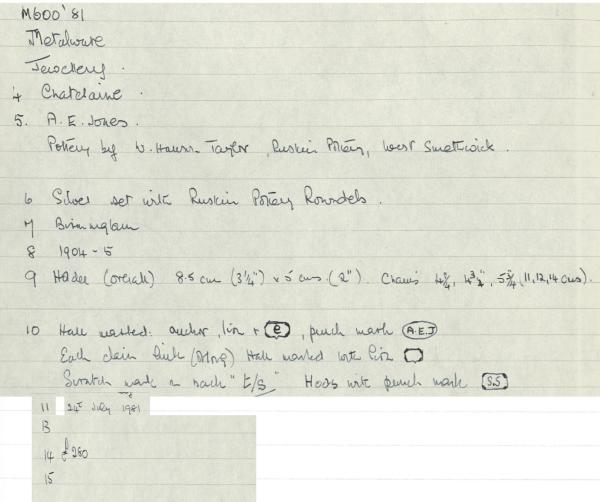 M600'81
Metalware
Jewellery.
4 Chatelaine.
5. A.E. Jones.
Pottery by W. Howson Taylor, Ruskin Pottery, West Smethwick.
6 Silver set with Ruskin Pottery Roundels.
7 Birmingham
8 1904-5
9 Holder (overall) 8.5 cm (3 1/4") x 5 cms (2"). Chains 4 3/4", 5 3/4" (11, 12, 14 cms).
10 Hall marked: anchor, lion + e, punch mark A.E.J
Each chain link (along) Hall marked with lion
Scratch mark on back "E/S" Hooks with punch mark S.S
11 24th July 1981
13
14 £280
15